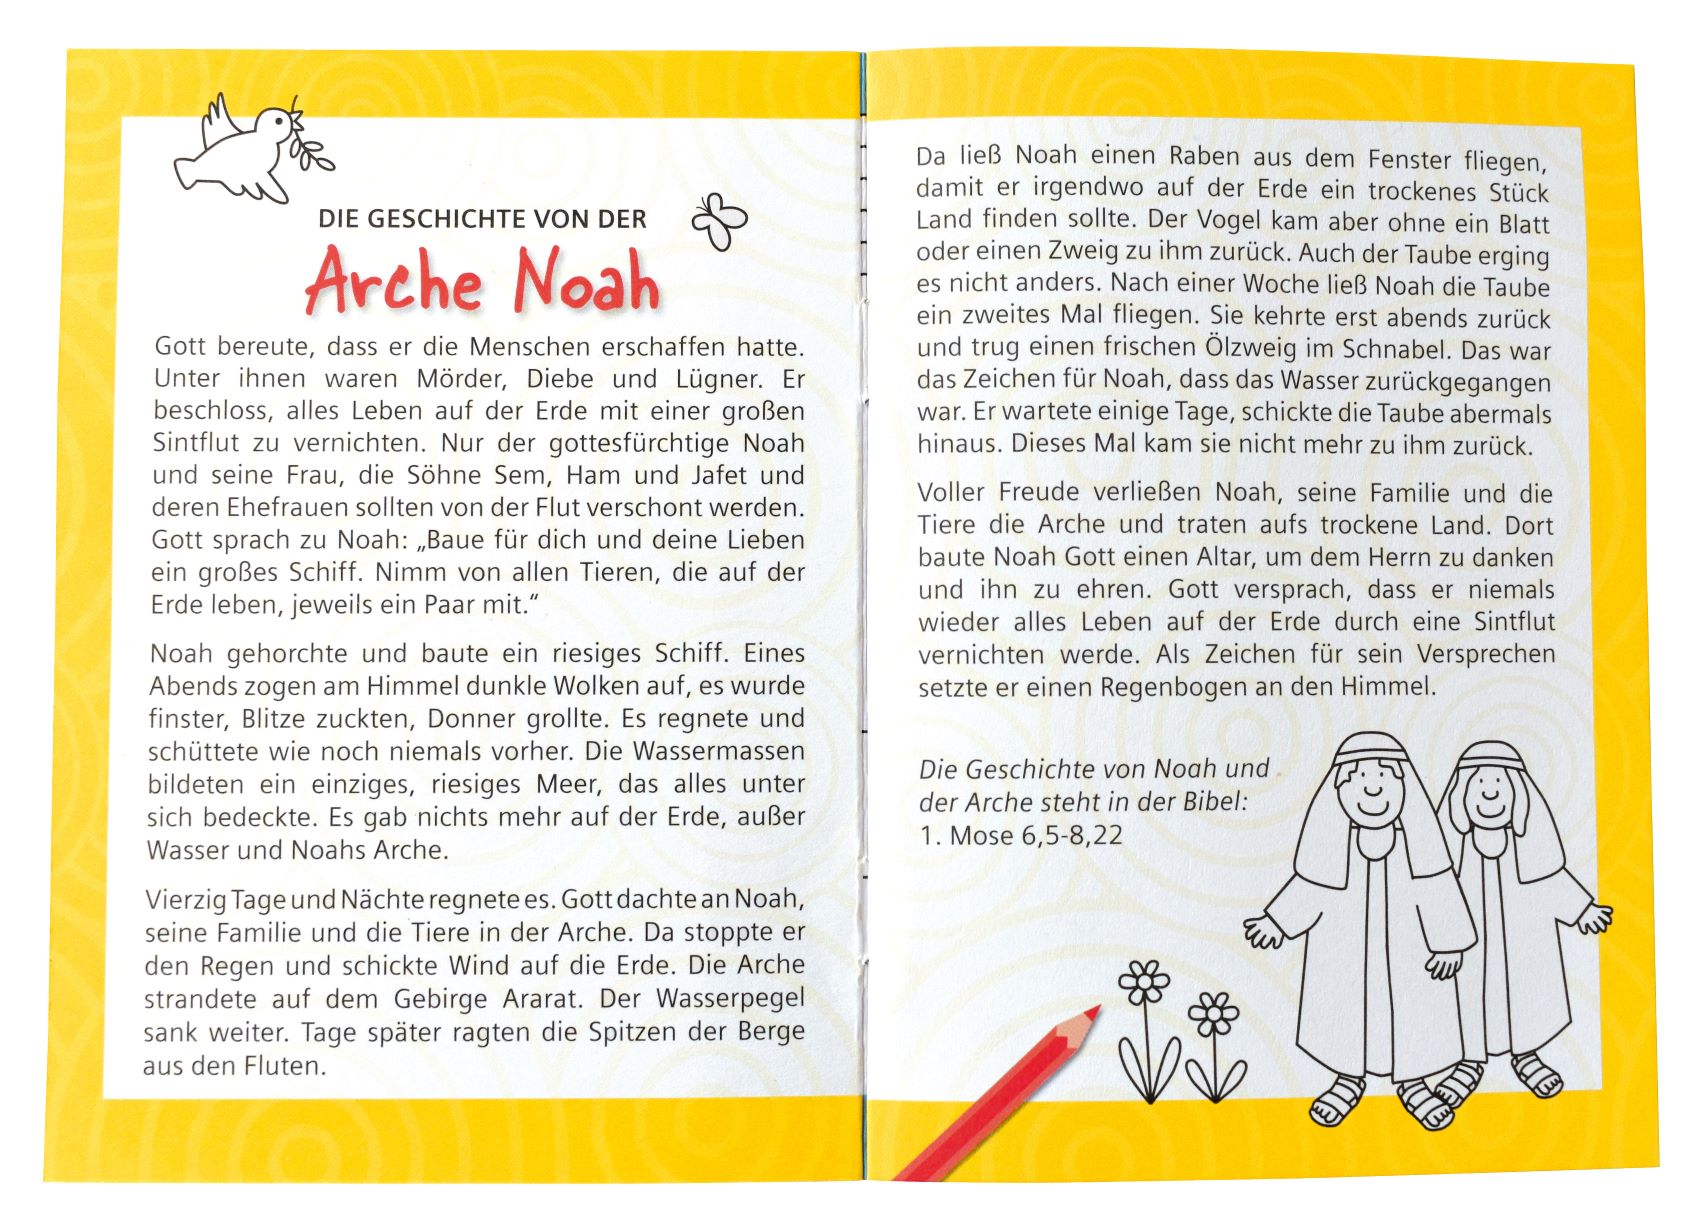 DIE GESCHICHTE VON DER
Arche Noah
Gott bereute, dass er die Menschen erschaffen hatte.
Unter ihnen waren Mörder, Diebe und Lügner. Er
beschloss, alles Leben auf der Erde mit einer großen
Sintflut zu vernichten. Nur der gottesfürchtige Noah
und seine Frau, die Söhne Sem, Ham und Jafet und
deren Ehefrauen sollten von der Flut verschont werden.
Gott sprach zu Noah: „Baue für dich und deine Lieben
ein großes Schiff. Nimm von allen Tieren, die auf der
Erde leben, jeweils ein Paar mit.“
Noah gehorchte und baute ein riesiges Schiff. Eines
Abends zogen am Himmel dunkle Wolken auf, es wurde
finster, Blitze zuckten, Donner grollte. Es regnete und
schüttete wie noch niemals vorher. Die Wassermassen
bildeten ein einziges, riesiges Meer, das alles unter
sich bedeckte. Es gab nichts mehr auf der Erde, außer
Wasser und Noahs Arche.
Vierzig Tage und Nächte regnete es. Gott dachte an Noah,
seine Familie und die Tiere in der Arche. Da stoppte er
den Regen und schickte Wind auf die Erde. Die Arche
strandete auf dem Gebirge Ararat. Der Wasserpegel
sank weiter. Tage später ragten die Spitzen der Berge
aus den Fluten.
Da ließ Noah einen Raben aus dem Fenster fliegen,
damit er irgendwo auf der Erde ein trockenes Stück
Land finden sollte. Der Vogel kam aber ohne ein Blatt
oder einen Zweig zu ihm zurück. Auch der Taube erging
es nicht anders. Nach einer Woche ließ Noah die Taube
ein zweites Mal fliegen. Sie kehrte erst abends zurück
und trug einen frischen Ölzweig im Schnabel. Das war
das Zeichen für Noah, dass das Wasser zurückgegangen
war. Er wartete einige Tage, schickte die Taube abermals
hinaus. Dieses Mal kam sie nicht mehr zu ihm zurück.
Voller Freude verließen Noah, seine Familie und die
Tiere die Arche und traten aufs trockene Land. Dort
baute Noah Gott einen Altar, um dem Herrn zu danken
und ihn zu ehren. Gott versprach, dass er niemals
wieder alles Leben auf der Erde durch eine Sintflut
vernichten werde. Als Zeichen für sein Versprechen
setzte er einen Regenbogen an den Himmel.
Die Geschichte von Noah und
der Arche steht in der Bibel:
1. Mose 6,5-8,22